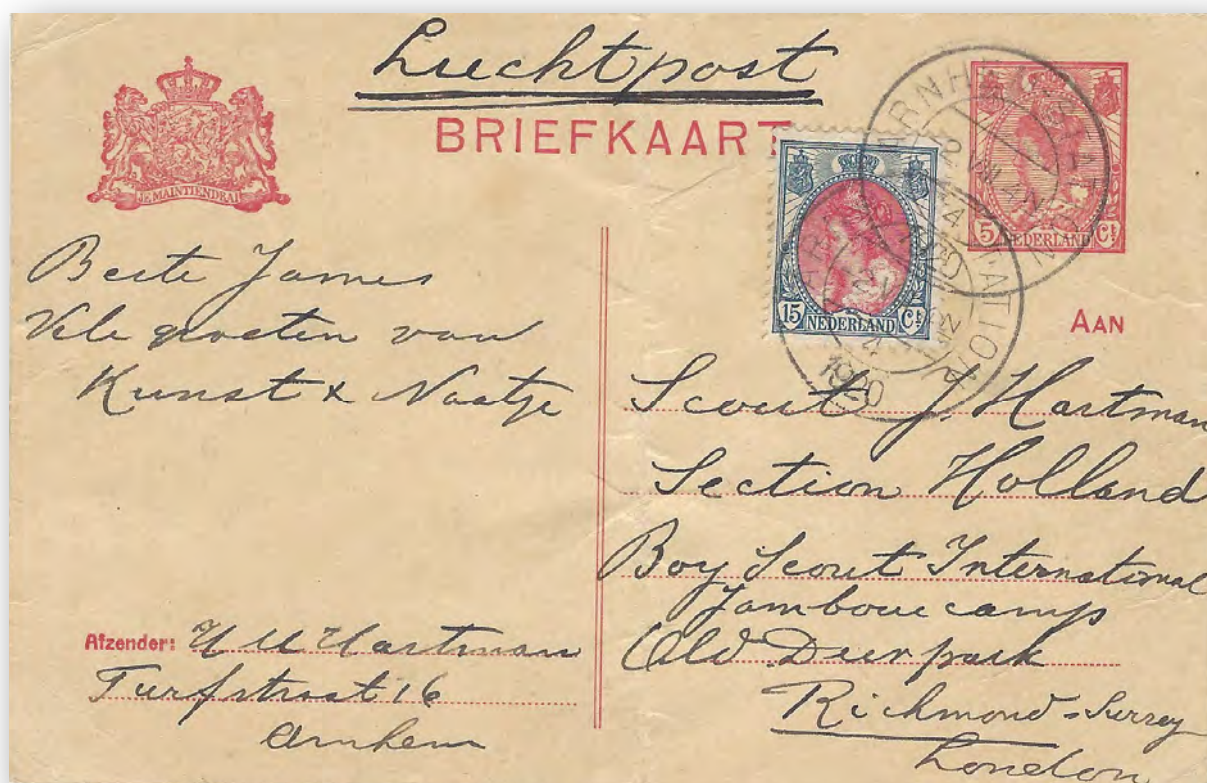 Luchtpost
JE MAINTIENDRAI
BRIEFKAART
ARNHEM STATION
2 VIII 4-N
1920
5 NEDERLAND Ct
15 NEDERLAND Ct
STATION
1920
Beste James
Vele groeten van
Kunst & Naatje
AAN
Scout J. Hartman
Section Holland
Boy Scout International
Jamboue camp
Old Deerpark
Richmond - Surrey
London
Afzender: Hartman
Turfstraat 16
Arnhem